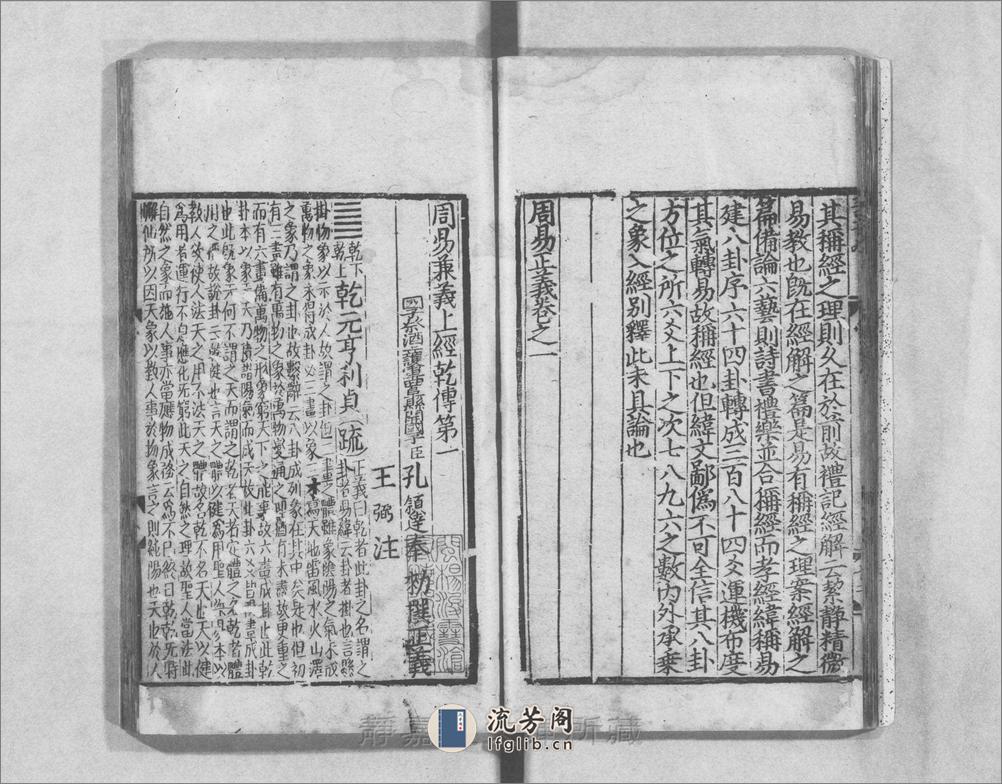 其稱經之理則久在於前故禮記經解云絜靜精微
易教也旣在經解之篇是易有稱經之理案經解之
篇備論六藝則詩書禮樂並合稱經而孝經緯稱易
建八卦序六十四卦轉成三百八十四爻運機布度
其氣轉易故稱經也但緯文鄙僞不可全信其八卦
方位之所六爻上下之次七八九六之數內外承乗
之象入經別釋此未具論也
周易正義卷之一
周易兼義上經乾傳第一
國子祭酒上護軍曲阜縣開國子臣孔穎達奉勑撰正義
王弼注
乾下
乾上
乾元亨利貞
疏
正義曰乾者此卦之名謂之
卦者易緯云卦者掛也言縣
掛物象以示於人故謂之卦但二畫之體雖象陰陽之氣未成
萬物之象未得成卦必三畫以象三才寫天地雷風水火山澤
之象乃謂之卦也故繫辭云八卦成列象在其中矣是也但初
有三畫雖有萬物之象於萬物變通之理猶有未盡故更重之
而有六畫備萬物之形象窮天下之能事故六畫成卦也此乾
卦本以象天天乃積諸陽氣而成天故此卦六爻皆陽畫成卦
也此旣象天何不謂之天而謂之乾者天者定體之名乾者體
用之稱故說卦云乾健也言天之體以健爲用聖人作易本以
教人欲使人法天之用不法天之體故名乾不名天也天以健
爲用者運行不息應化无窮此天之自然之理故聖人當法此
自然之象而施人事亦當應物成務云爲不已終日乾乾无時
懈倦所以因天象以教人事於物象言之則純陽也天也於人
靜嘉
所藏
流芳阁
lfglib.cn